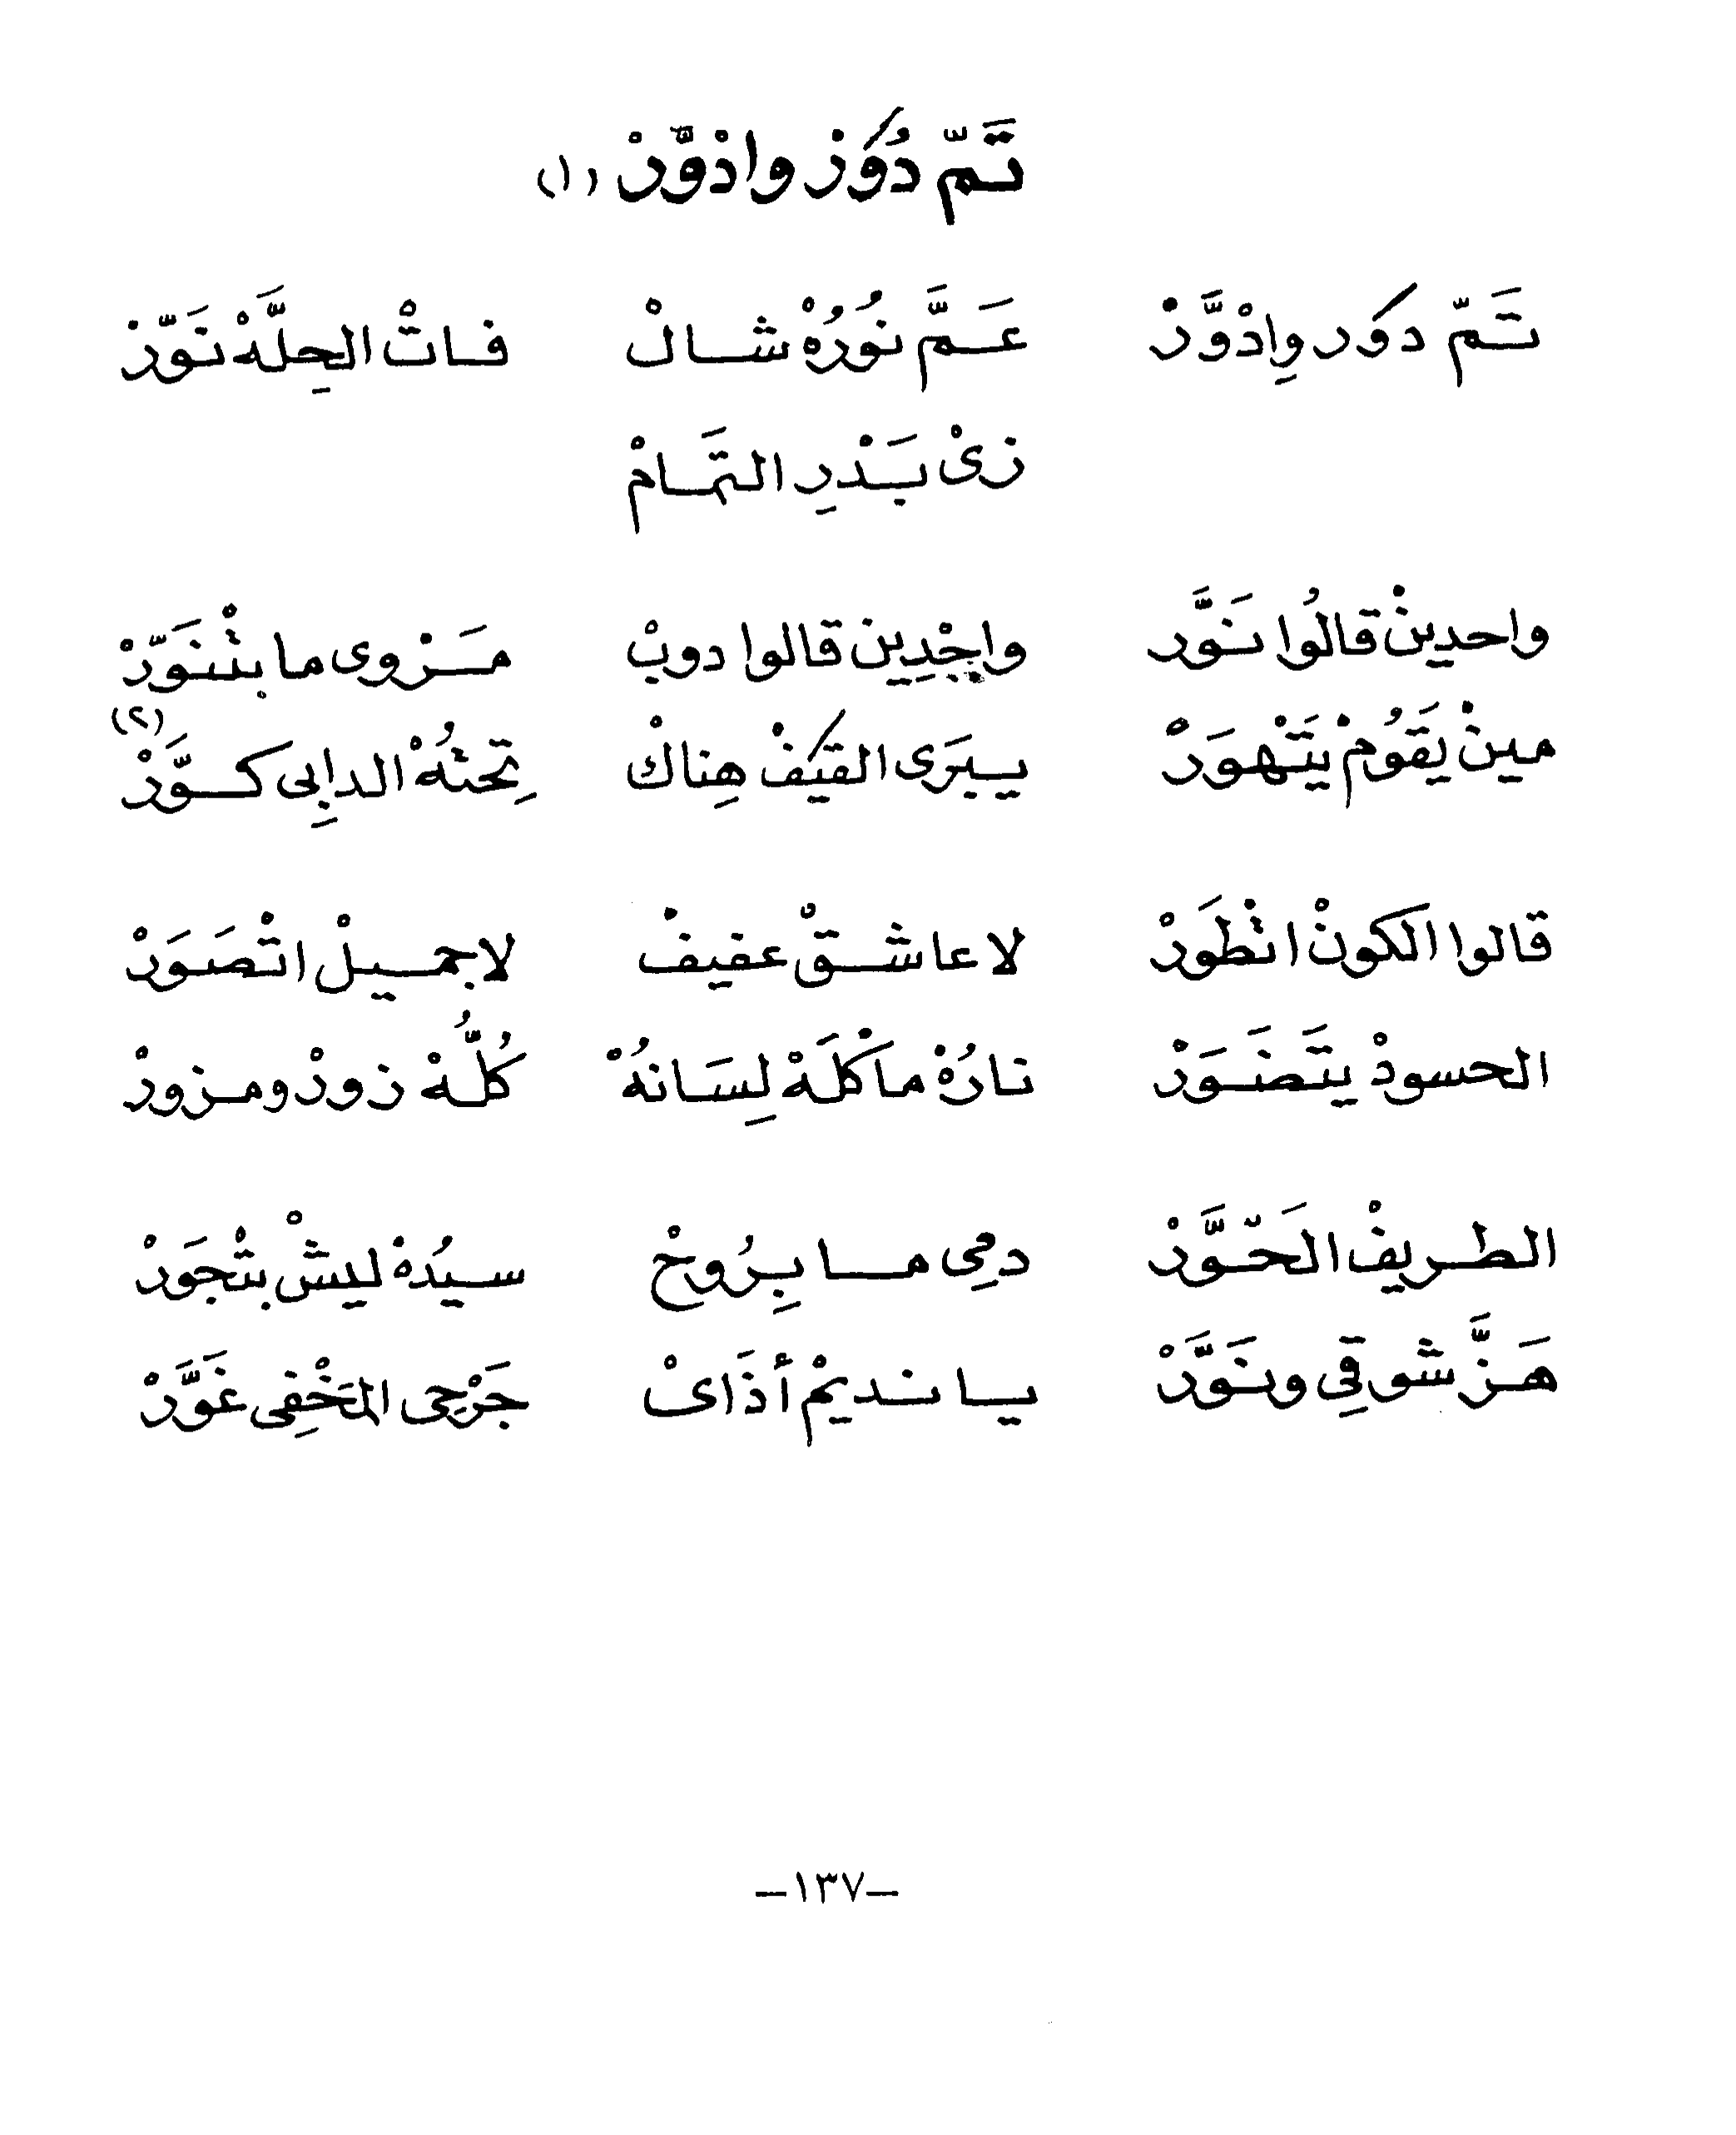 تَمّ دُوَرْ وادْوَّرْ (١)
تَمّ دوَر وِادْوَّرْ عَمَّ نُورُهْ شالْ فاتْ الحِلَّهْ نَوّرْ
زىْ بَدْرِ التمَامْ
واحدينْ قالُوا نَوَّر واحْدِين قالوا دوبْ مَرْوى ما بتْنَوّرْ
مينْ يقَوُمْ يتَهْوَرْ يبرَى القيَفْ هِناكْ تِحتُهْ الدابِى كوَّرْ (٢)
قالوا الكونْ اتْطَورْ لا عاشقْ عفيفْ لا جميلْ اتْصَوَرْ
الحسودْ يتَضَوَرْ نارُهْ ماكْلَهْ لِسَانهُ كُلُّهْ زورْ ومزورْ
الطريفْ الحَوَّرْ دمِى ما بِرُوحْ سيدُهْ ليشْ بتْجَورْ
هَزَّ شوقِى ونَوَّرْ يا نديمْ أذَاىْ جَرْحِى المَخْفِى غَوَّرْ
–١٣٧–